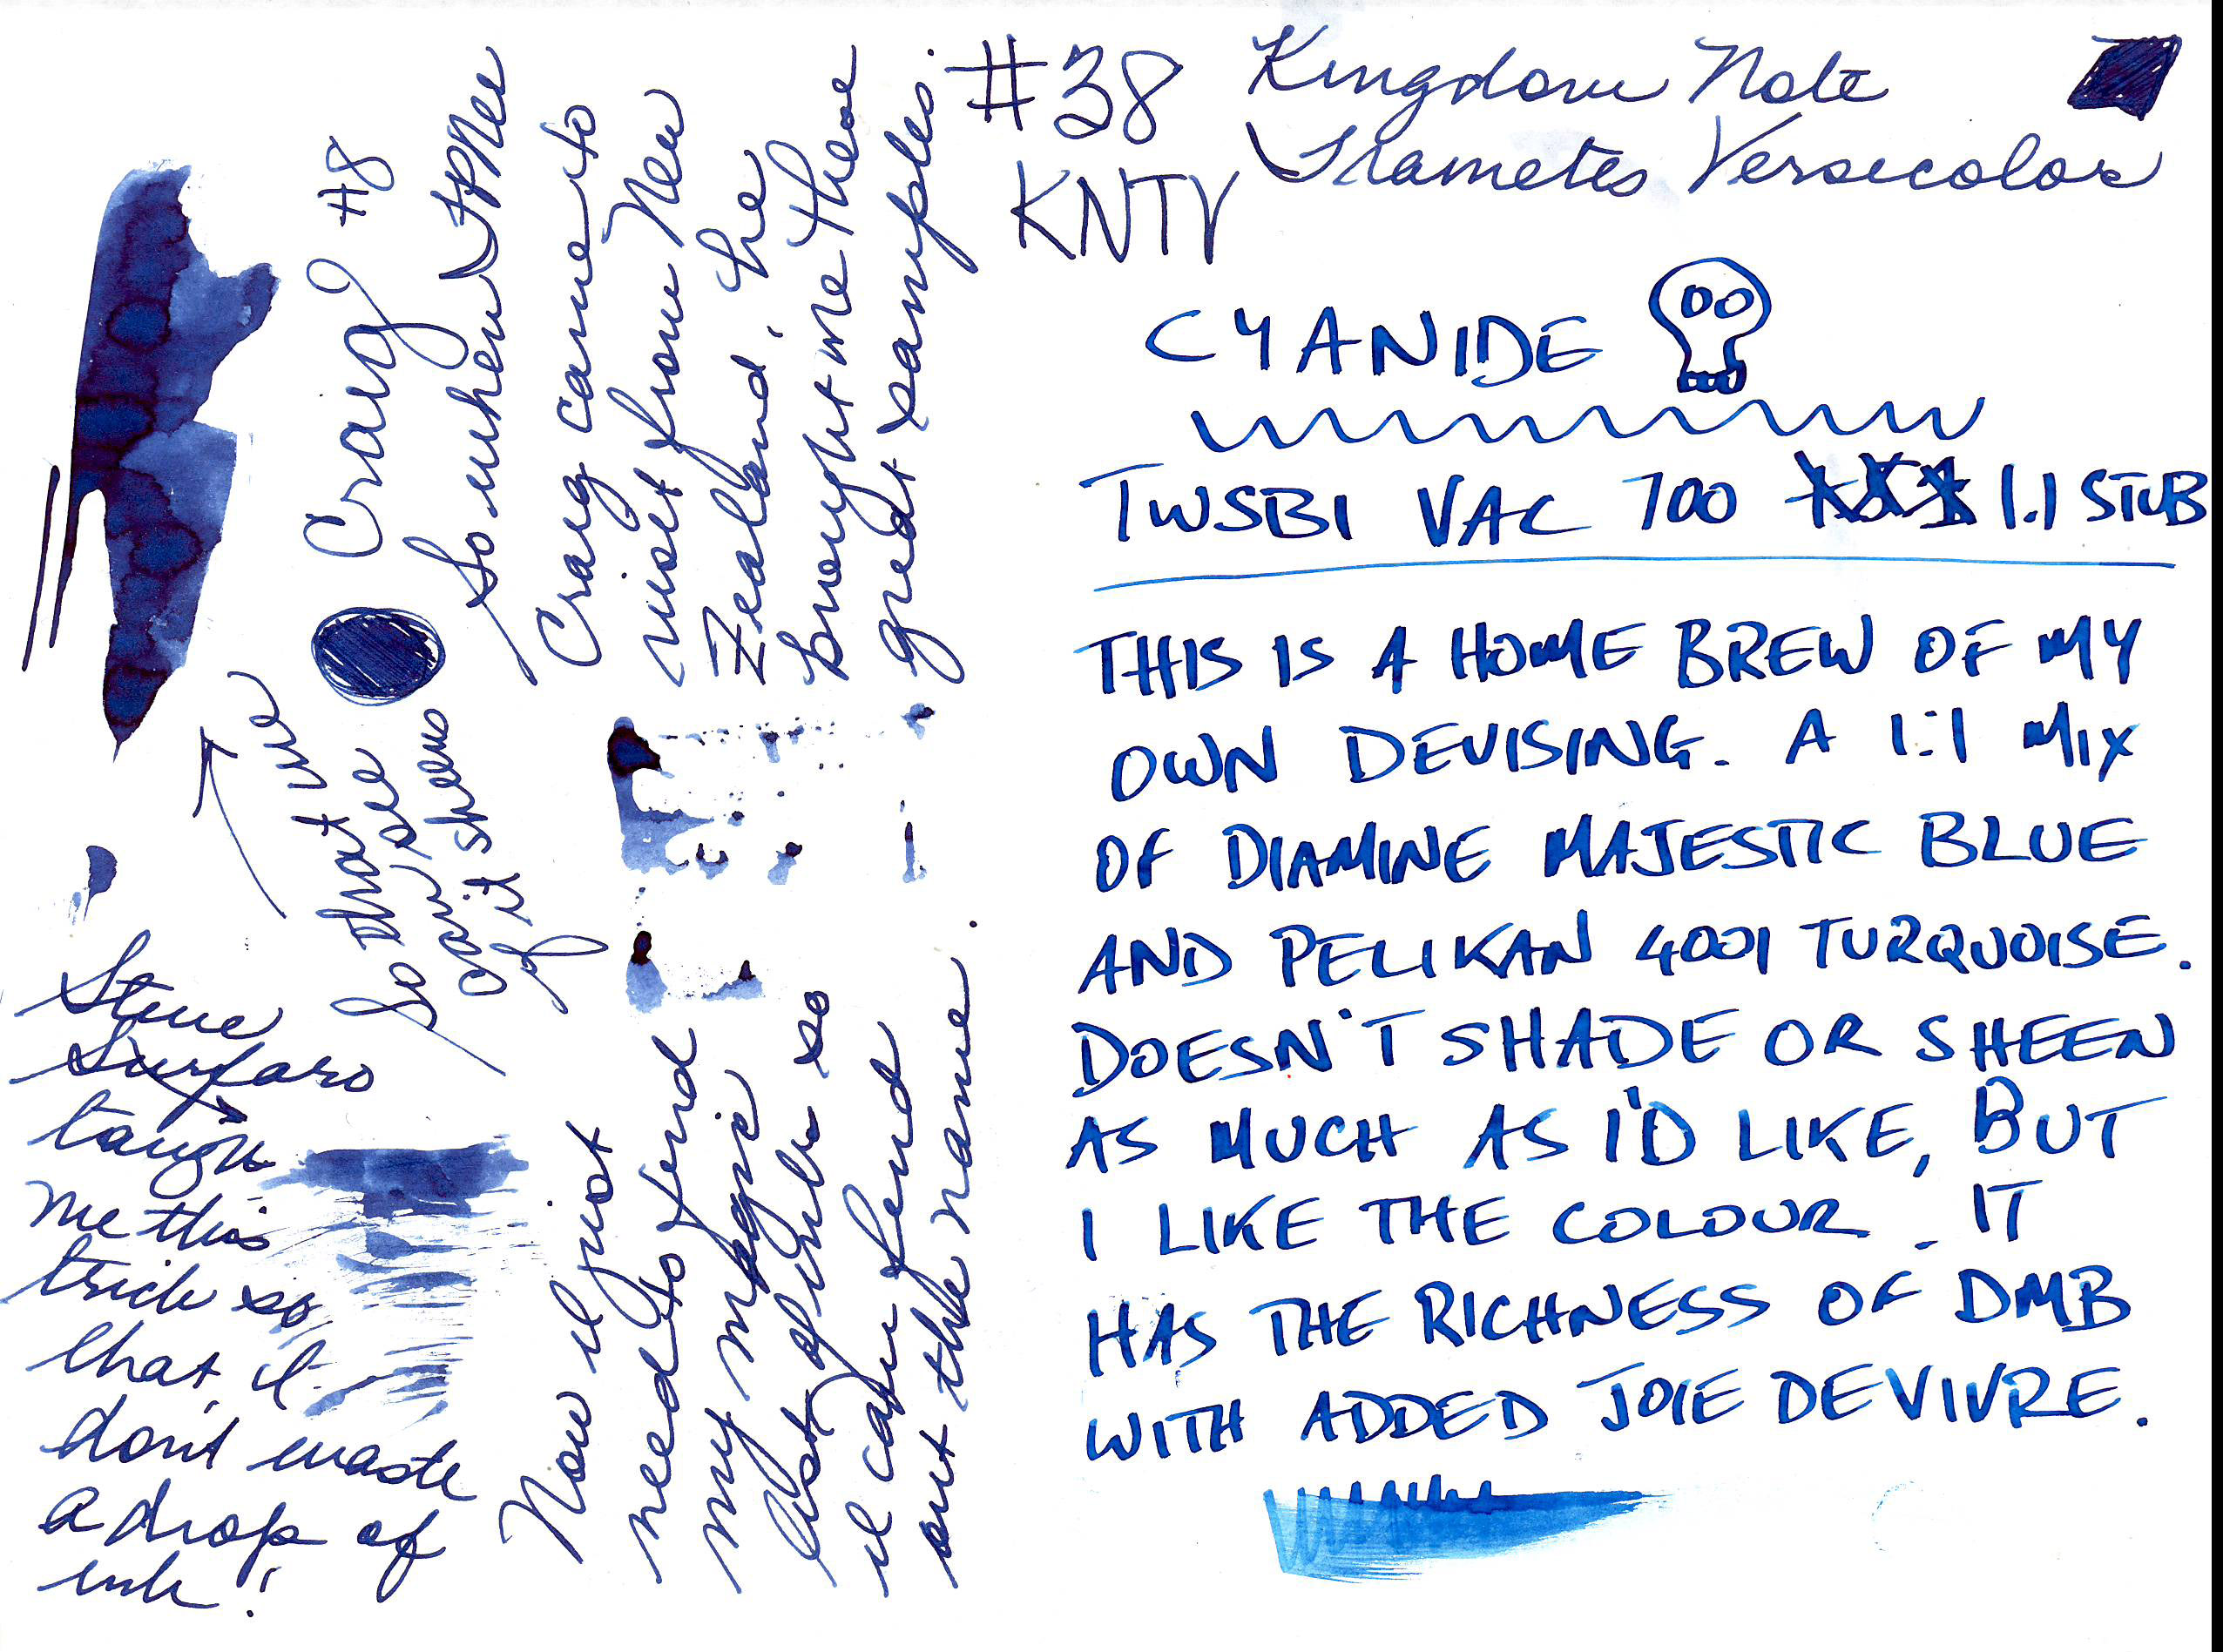 #38 Kingdom Note
Trametes Versicolor
KNTV
CYANIDE
TWSBI VAC 700 1.1 STUB
THIS IS A HOME BREW OF MY
OWN DEVISING. A 1:1 MIX
OF DIAMINE MAJESTIC BLUE
AND PELIKAN 4001 TURQUOISE.
DOESN'T SHADE OR SHEEN
AS MUCH AS I'D LIKE, BUT
I LIKE THE COLOUR. IT
HAS THE RICHNESS OF DMB
WITH ADDED JOIE DE VIVRE.
Craig #8
So when FPNer
Craig came to
visit from New
Zealand, he
brought me these
great samples.
so that we
can see
of it sheens
Now I just
need to find
my magic
list of inks so
I can find
out the name.
Steve
Surfaro
taught
me this
trick so
that I
don't waste
a drop of
ink!